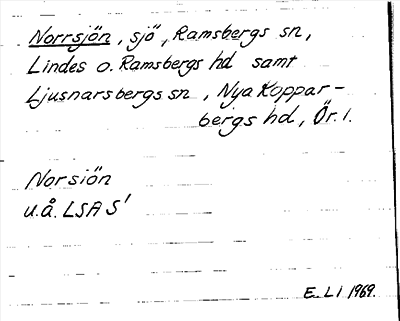 Norrsjön, sjö, Ramsbergs sn,
Lindes o. Ramsbergs hd samt
Ljusnarsbergs sn, Nya Koppar-
bergs hd, Ör. l.
Norsiön
u.å. LSA S1
E. Li 1969.